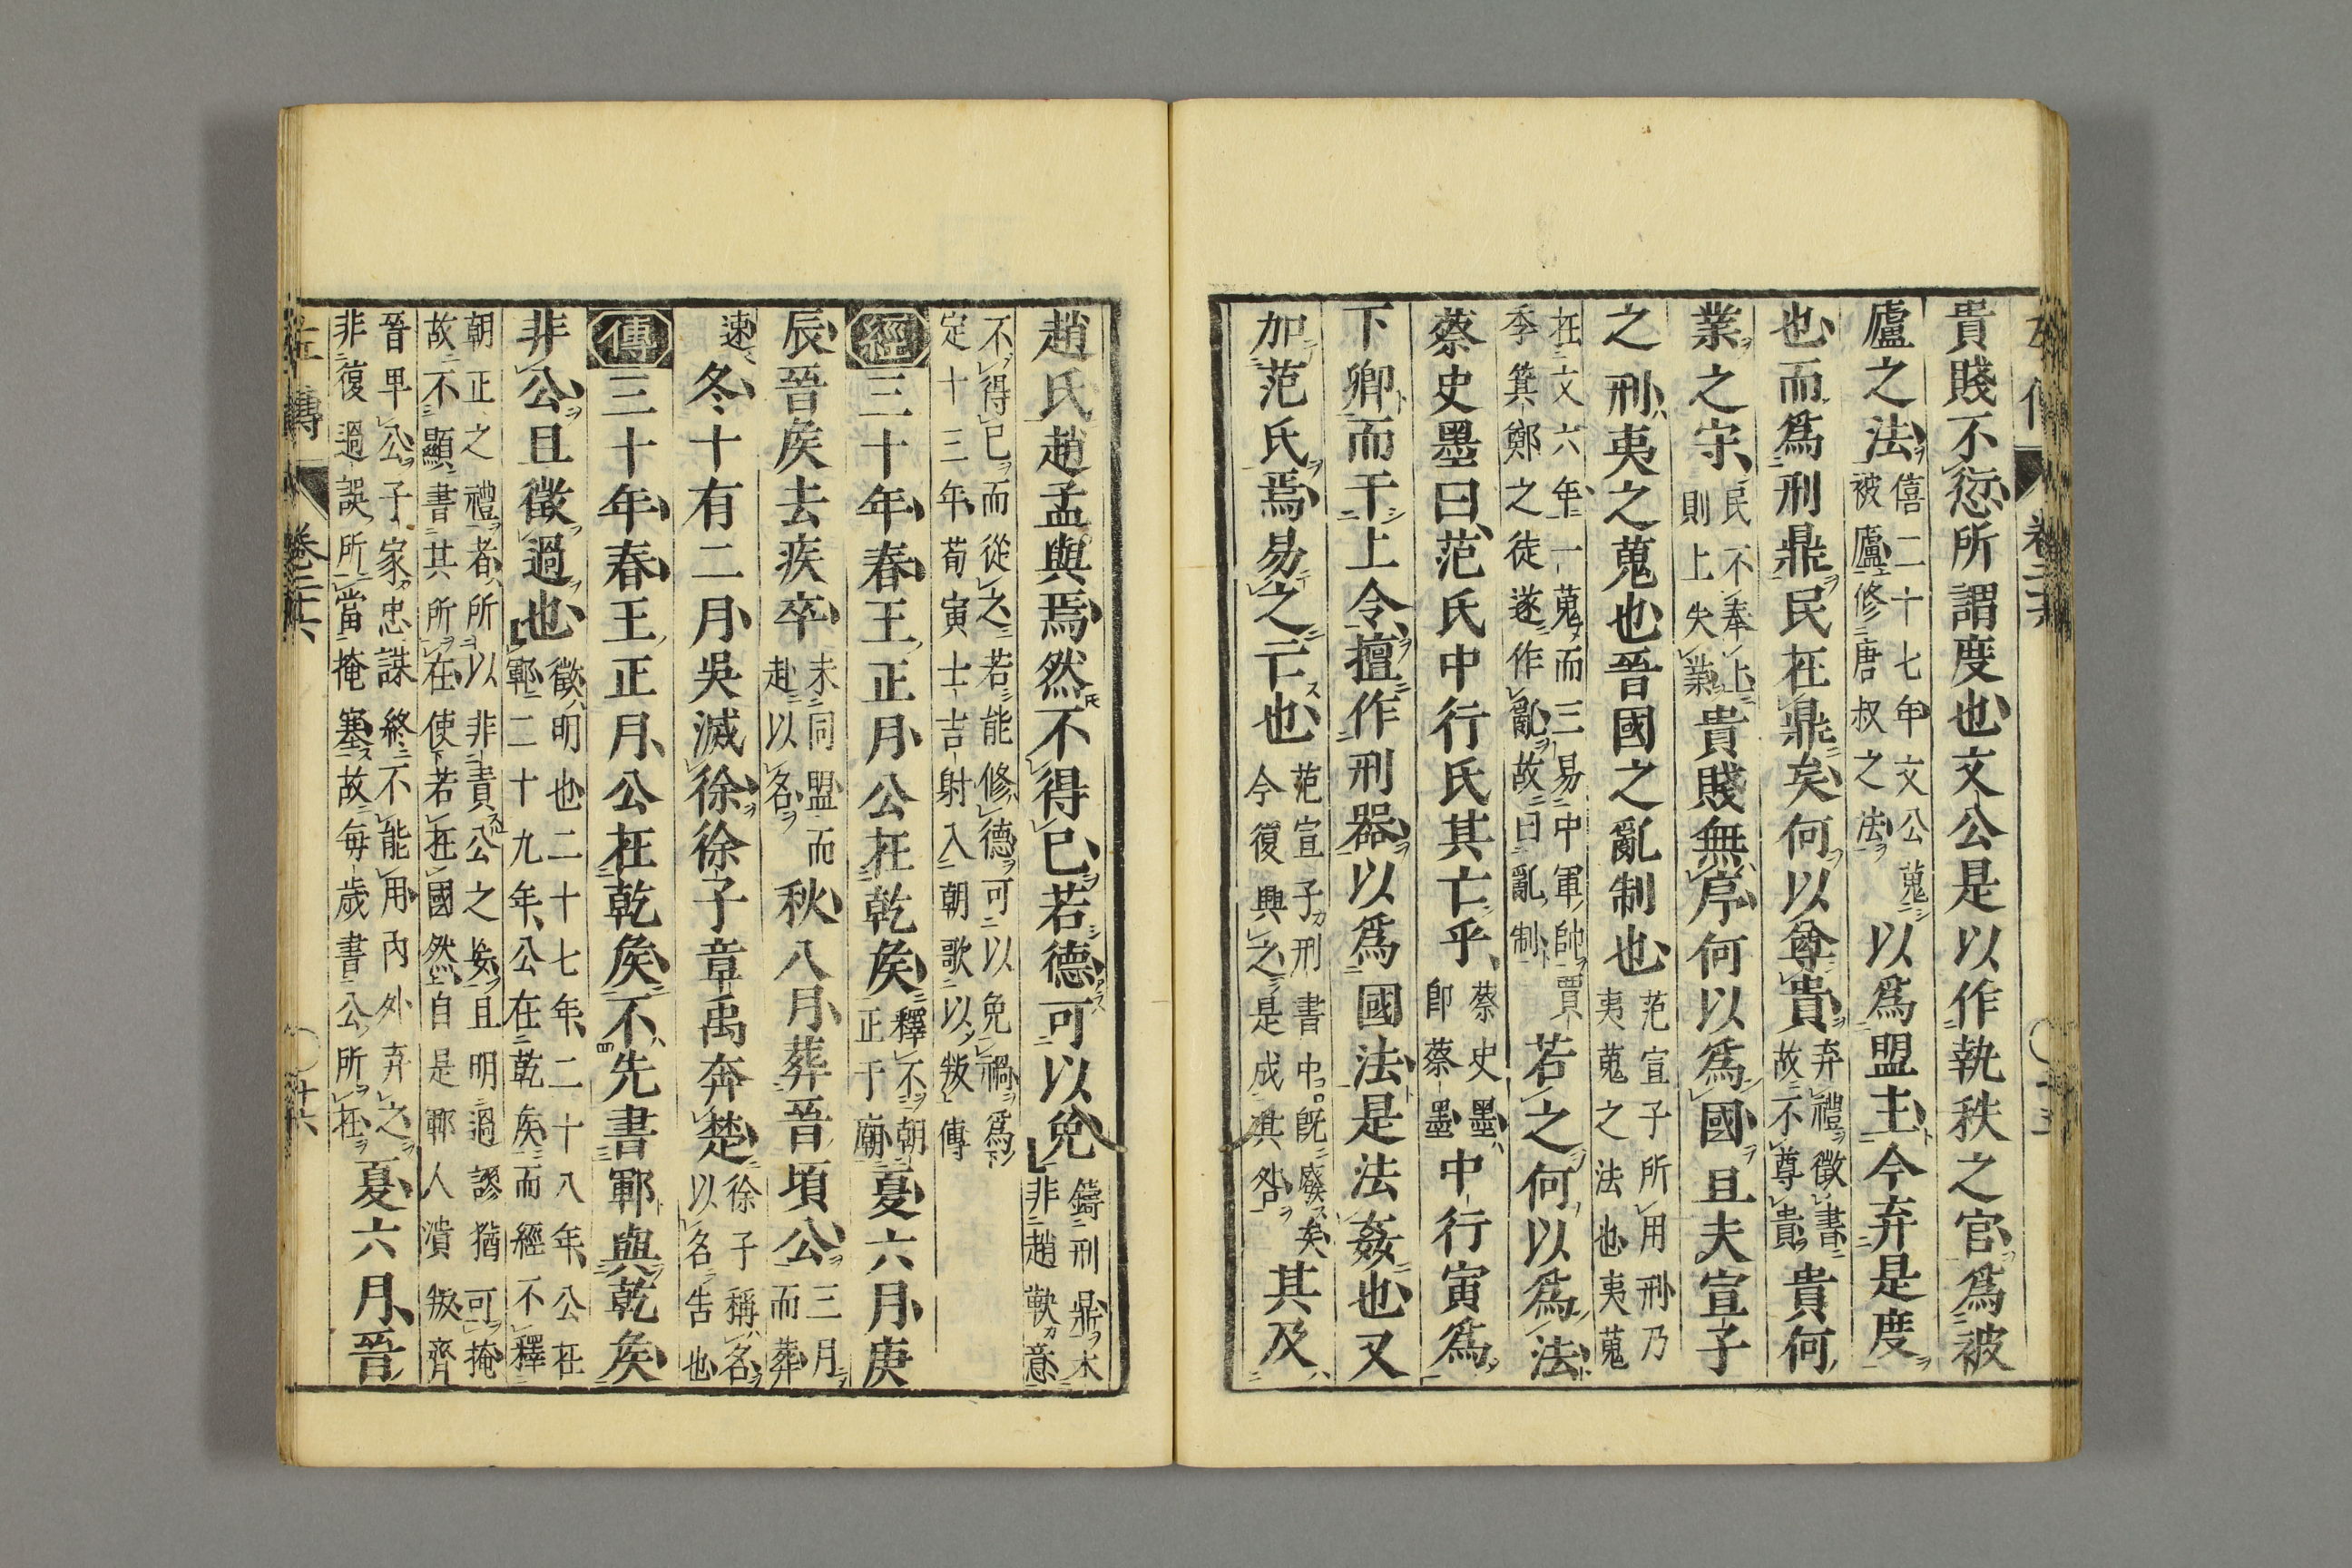 貴賤不愆所謂度也文公是以作執秩之官爲被
廬之法僖二十七年文公蒐被廬修唐叔之法以爲盟主今弃是度
也而爲刑鼎民在鼎矣何以尊貴弃禮徵書故不尊貴貴何
業之守民不奉上則上失業貴賤無序何以爲國且夫宣子
之刑夷之蒐也晉國之亂制也范宣子所用刑乃夷蒐之法也夷蒐
在文六年一蒐而三易中軍帥賈季箕鄭之徒遂作亂故曰亂制若之何以爲法
蔡史墨曰范氏中行氏其亡乎蔡史墨卽蔡墨中行寅爲
下卿而干上令擅作刑器以爲國法是法姦也又
加范氏焉易之亡也范宣子刑書中旣廢矣今復興之是成其咎其及
趙氏趙孟與焉然不得已若德可以免鑄刑鼎本非趙鞅意
不得已而從之若能修德可以免禍爲定十三年荀寅士吉射入朝歌以叛傳
經三十年春王正月公在乾侯釋不朝正于廟夏六月庚
辰晉侯去疾卒未同盟而赴以名秋八月葬晉頃公三月而葬
速冬十有二月吳滅徐徐子章禹奔楚徐子稱名以名告也
傳三十年春王正月公在乾侯不先書鄆與乾侯
非公且徵過也徵明也二十七年二十八年公在鄆二十九年公在乾侯而經不釋
朝正之禮者所以非責公之妄且明過謬猶可掩故不顯書其所在使若在國然自是鄆人潰叛齊
晉卑公子家忠謀終不能用内外弃之非復過誤所當掩塞故每歲書公所在夏六月晉
左傳 卷二十六 十六